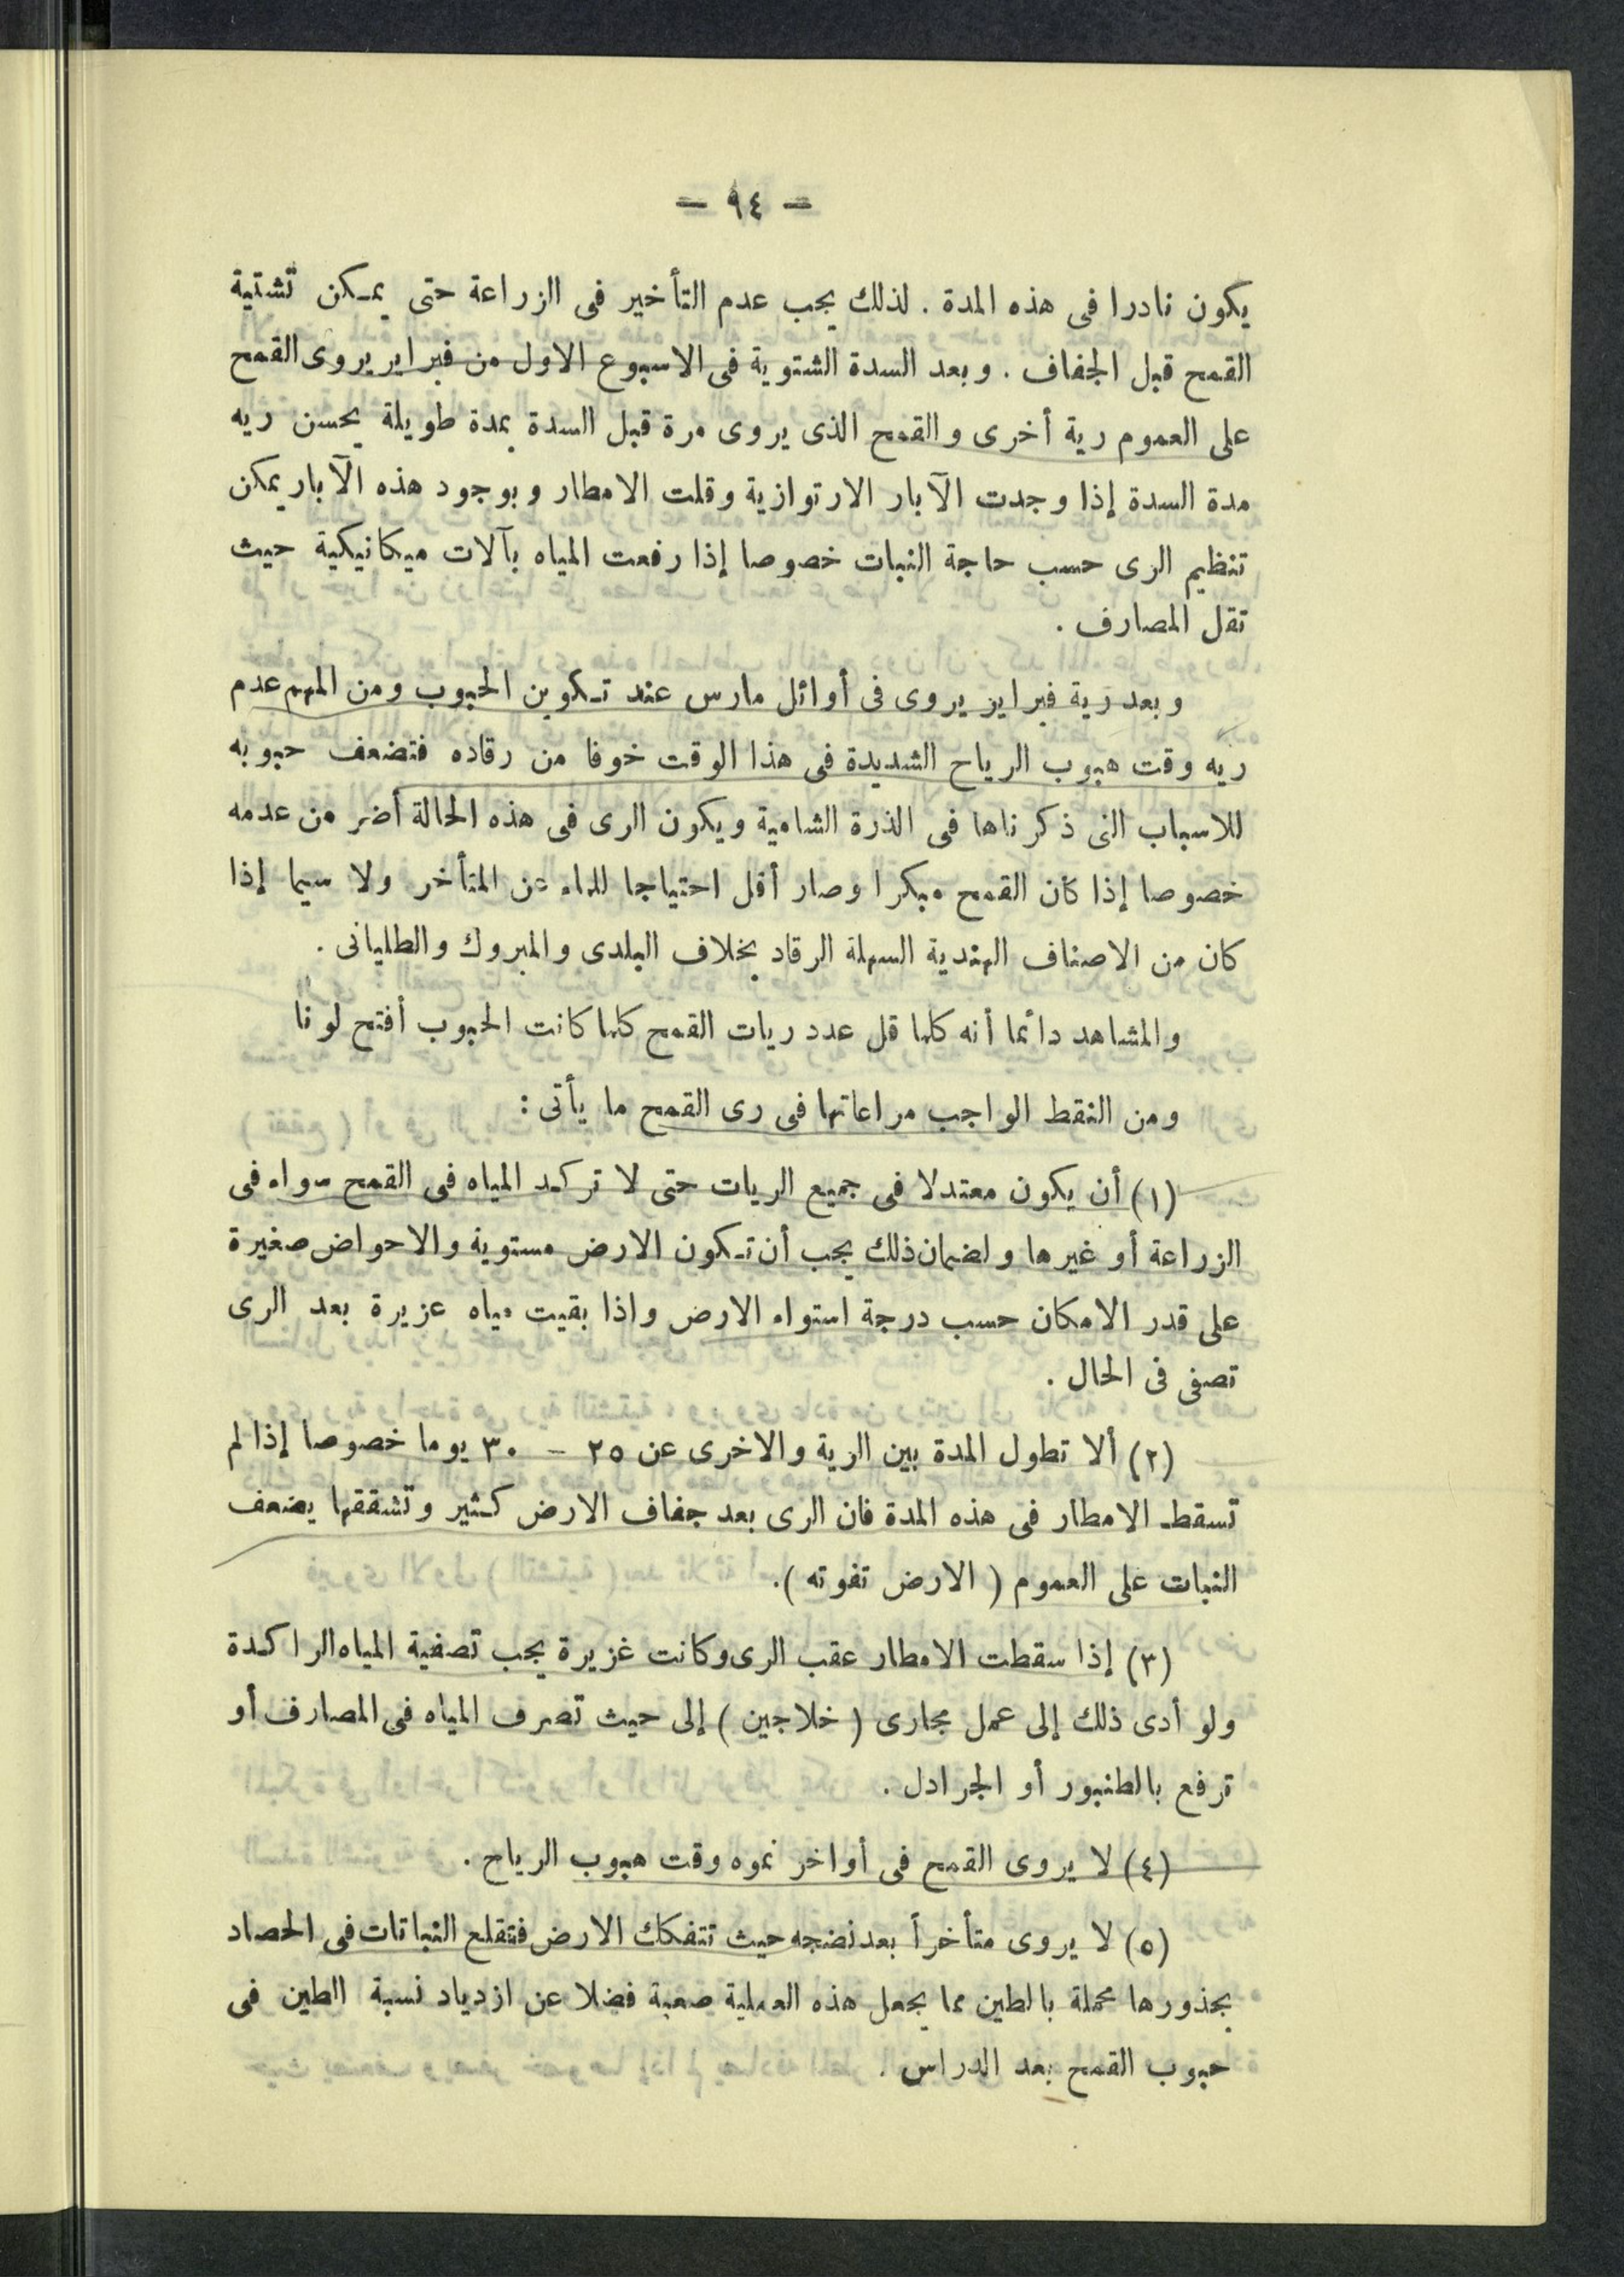 - ٩٤ -
يكون نادرا فى هذه المدة . لذلك يجب عدم التأخير فى الزراعة حتى يمكن تشتية
القمح قبل الجفاف . وبعد السدة الشتوية فى الاسبوع الاول من فبراير يروى القمح
على العموم رية أخرى والقمح الذى يروى مرة قبل السدة بمدة طويلة يحسن ريه
مدة السدة إذا وجدت الآبار الارتوازية وقلت الامطار وبوجود هذه الآبار يمكن
تنظيم الرى حسب حاجة النبات خصوصا إذا رفعت المياه بآلات ميكانيكية حيث
تقل المصارف .
وبعد رية فبراير يروى فى أوائل مارس عند تكوين الحبوب ومن المهم عدم
ريه وقت هبوب الرياح الشديدة فى هذا الوقت خوفا من رقاده فتضعف حبوبه
للاسباب التى ذكرناها فى الذرة الشامية ويكون الرى فى هذه الحالة أضر من عدمه
خصوصا إذا كان القمح مبكرا وصار أقل احتياجا للماء عن المتأخر ولا سيما إذا
كان من الاصناف الهندية السهلة الرقاد بخلاف البلدى والمبروك والطليانى .
والمشاهد دائما أنه كلما قل عدد ريات القمح كلما كانت الحبوب أفتح لونا
ومن النقط الواجب مراعاتها فى رى القمح ما يأتى :
(١) أن يكون معتدلا فى جميع الريات حتى لا تركد المياه فى القمح سواء فى
الزراعة أو غيرها ولضمان ذلك يجب أن تكون الارض مستوية والاحواض صغيرة
على قدر الامكان حسب درجة استواء الارض واذا بقيت مياه عزيرة بعد الرى
تصفى فى الحال .
(٢) ألا تطول المدة بين الرية والاخرى عن ٢٥ - ٣٠ يوما خصوصا إذا لم
تسقط الامطار فى هذه المدة فان الرى بعد جفاف الارض كثير وتشققها يضعف
النبات على العموم ( الارض تفوته ).
(٣) إذا سقطت الامطار عقب الرى وكانت غزيرة يجب تصفية المياه الراكدة
ولو أدى ذلك إلى عمل مجارى ( خلاجين ) إلى حيث تصرف المياه فى المصارف أو
ترفع بالطنبور أو الجرادل .
(٤) لا يروى القمح فى أواخر نموه وقت هبوب الرياح .
(٥) لا يروى متأخراً بعد نضجه حيث تتفكك الارض فتقلع النباتات فى الحصاد
بجذورها محملة بالطين مما يجعل هذه العملية صعبة فضلا عن ازدياد نسبة الطين فى
حبوب القمح بعد الدراس .